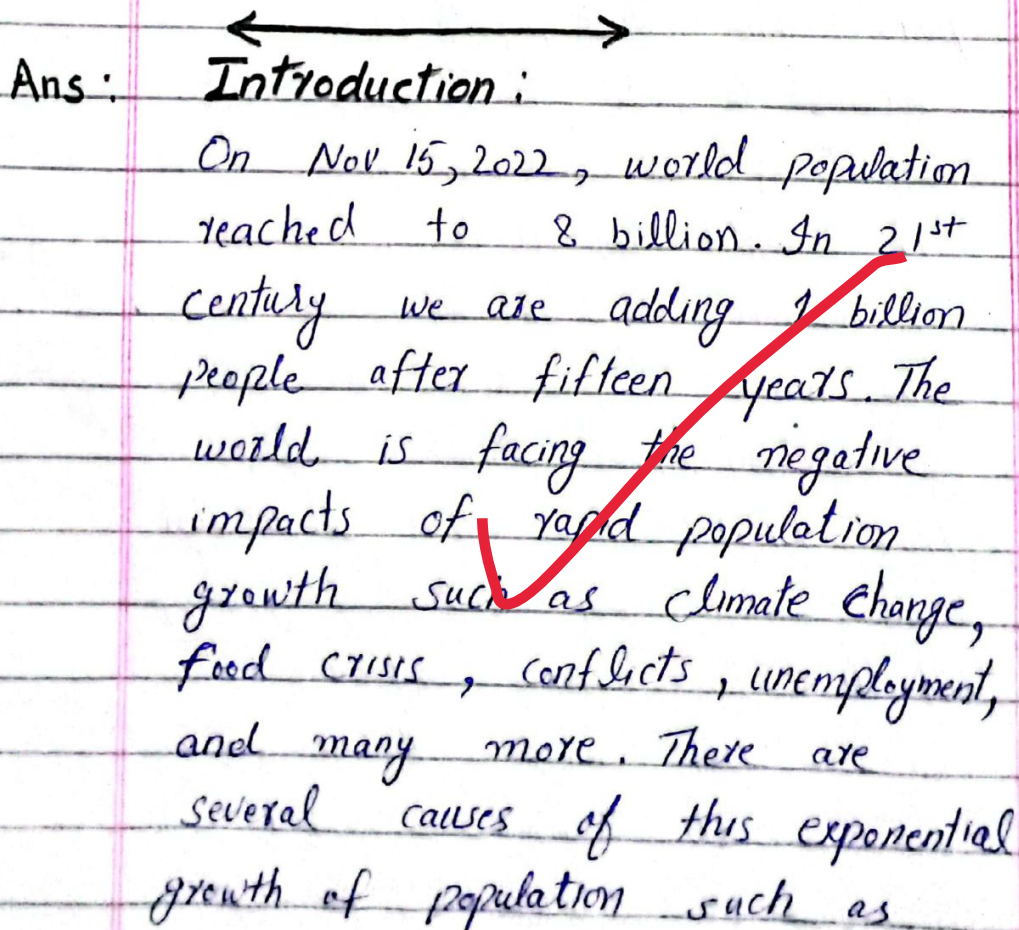 Ans: Introduction:
On Nov 15, 2022, world population
reached to 8 billion. In 21st
century we are adding 1 billion
people after fifteen years. The
world is facing the negative
impacts of rapid population
growth such as climate change,
food crisis, conflicts, unemployment,
and many more. There are
several causes of this exponential
growth of population such as